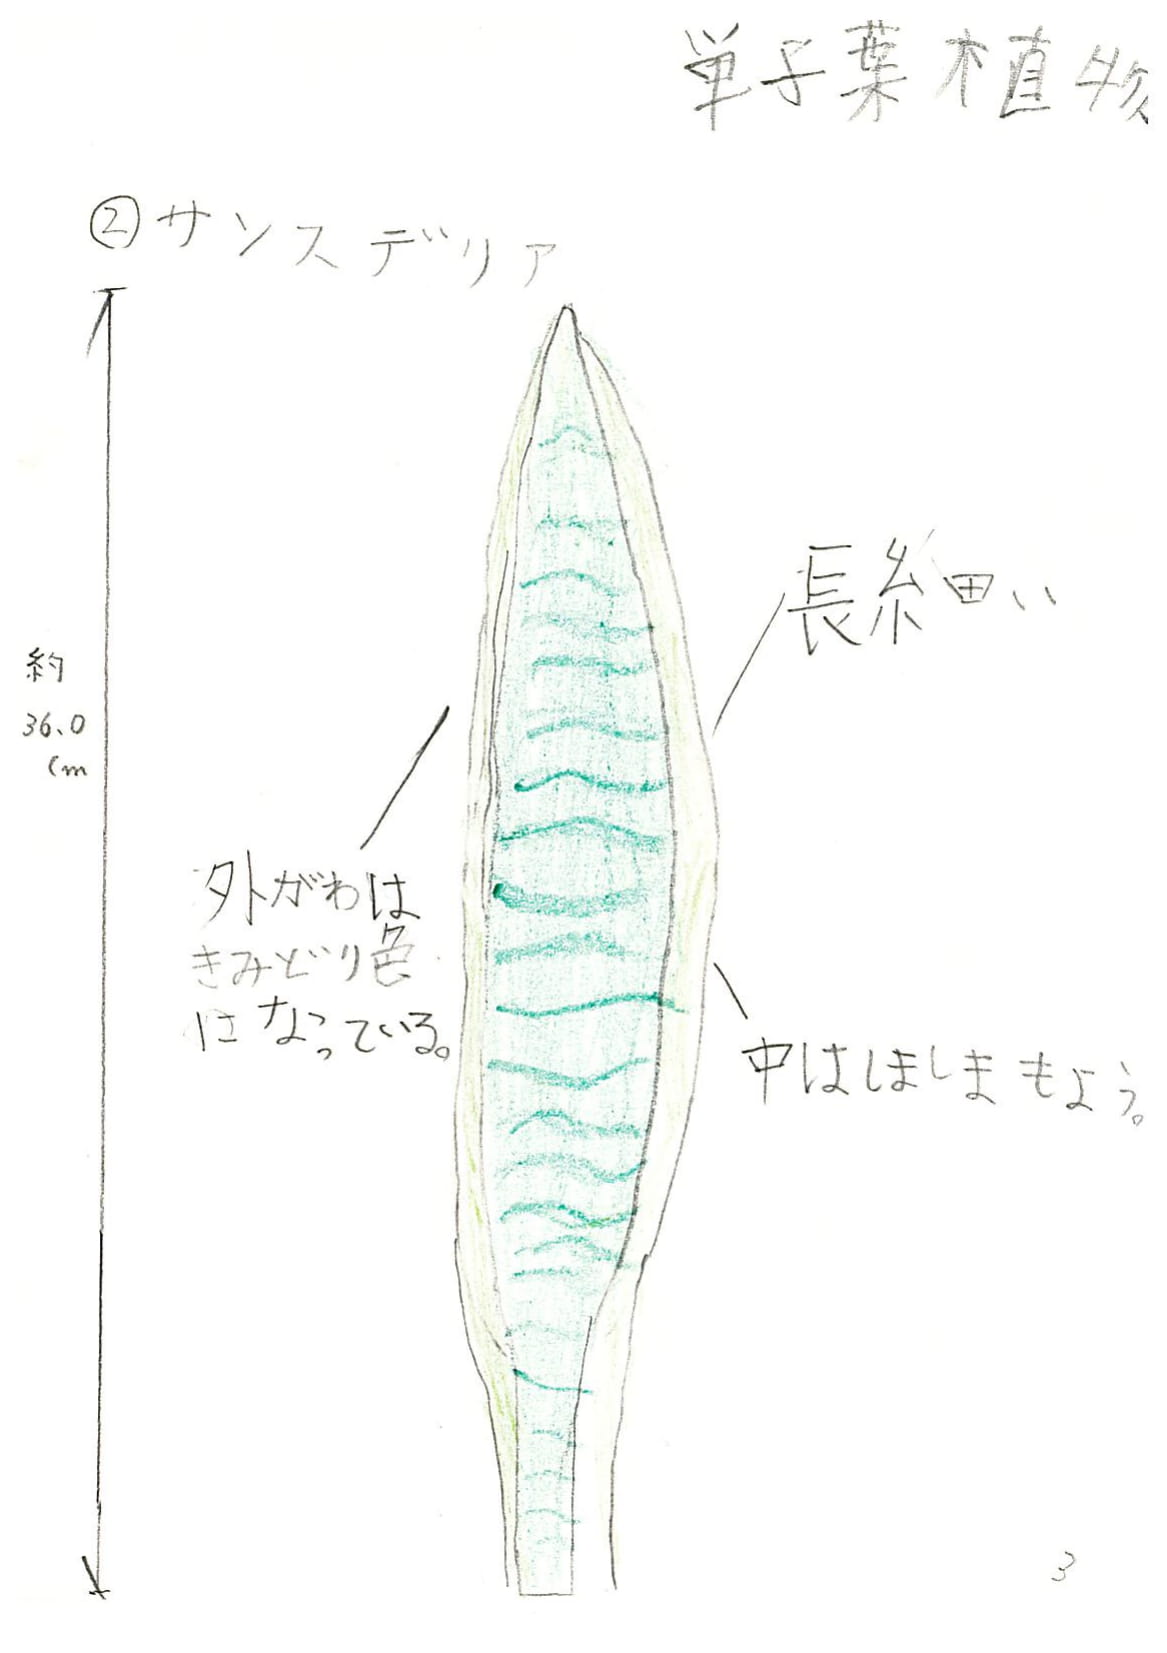 単子葉植物
②サンスデリア
長細い
約
36.0
cm
外がわは
きみどり色
になっている。
中はしましまもよう。
3